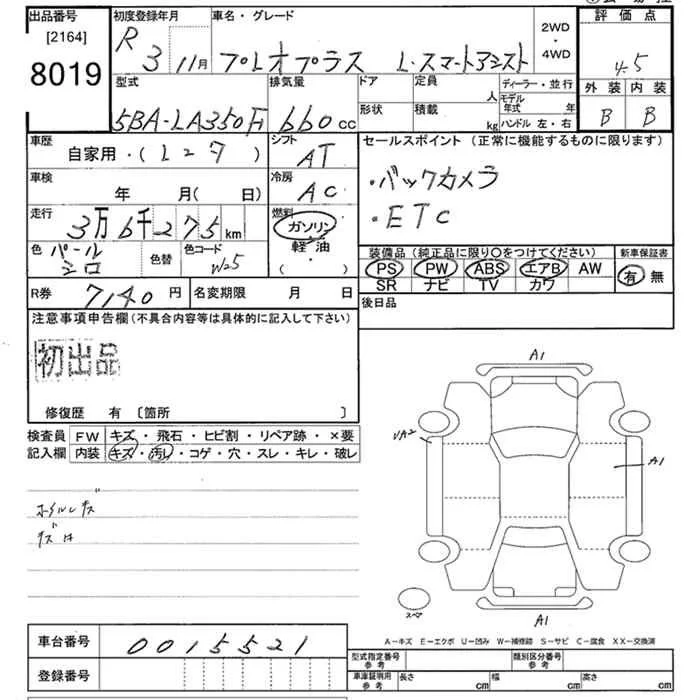 出品番号 初度登録年月 車名・グレード 2WD・4WD 評価点
[2164]
8019
R 3 11月 プレオプラス L・スマートアシスト 4.5
型式 排気量 ドア 定員 人 ディーラー・並行 外装 内装
形状 積載 kg モデル年式 年 ハンドル 左・右
5BA-LA350F 660cc B B
車歴 自家用・(レンタ) シフト AT
セールスポイント (正常に機能するものに限ります)
車検 年 月(日) 冷房 AC
・バックカメラ
・ETC
走行 3万6千275km 燃料 ガソリン 軽油 ( )
色 パールシロ 色替 色コード W25
装備品 (純正品に限り○をつけてください) 新車保証書
PS PW ABS エアB AW 有 無
SR ナビ TV カワ
R券 7140円 名変期限 月 日
後日品
注意事項申告欄(不具合内容等は具体的に記入して下さい)
初出品
修復歴 有 [箇所 ]
検査員記入欄 FW キズ・飛石・ヒビ割・リペア跡・×要
内装 キズ・汚し・コゲ・穴・スレ・キレ・破レ
A1
A1
A1
A-キズ E-エクボ U-凹み W-補修跡 S-サビ C-腐食 XX-交換済
車台番号 0015521
登録番号
型式指定番号 参考 類別区分番号 参考
車庫証明用 参考 長さ cm 幅 cm 高さ cm